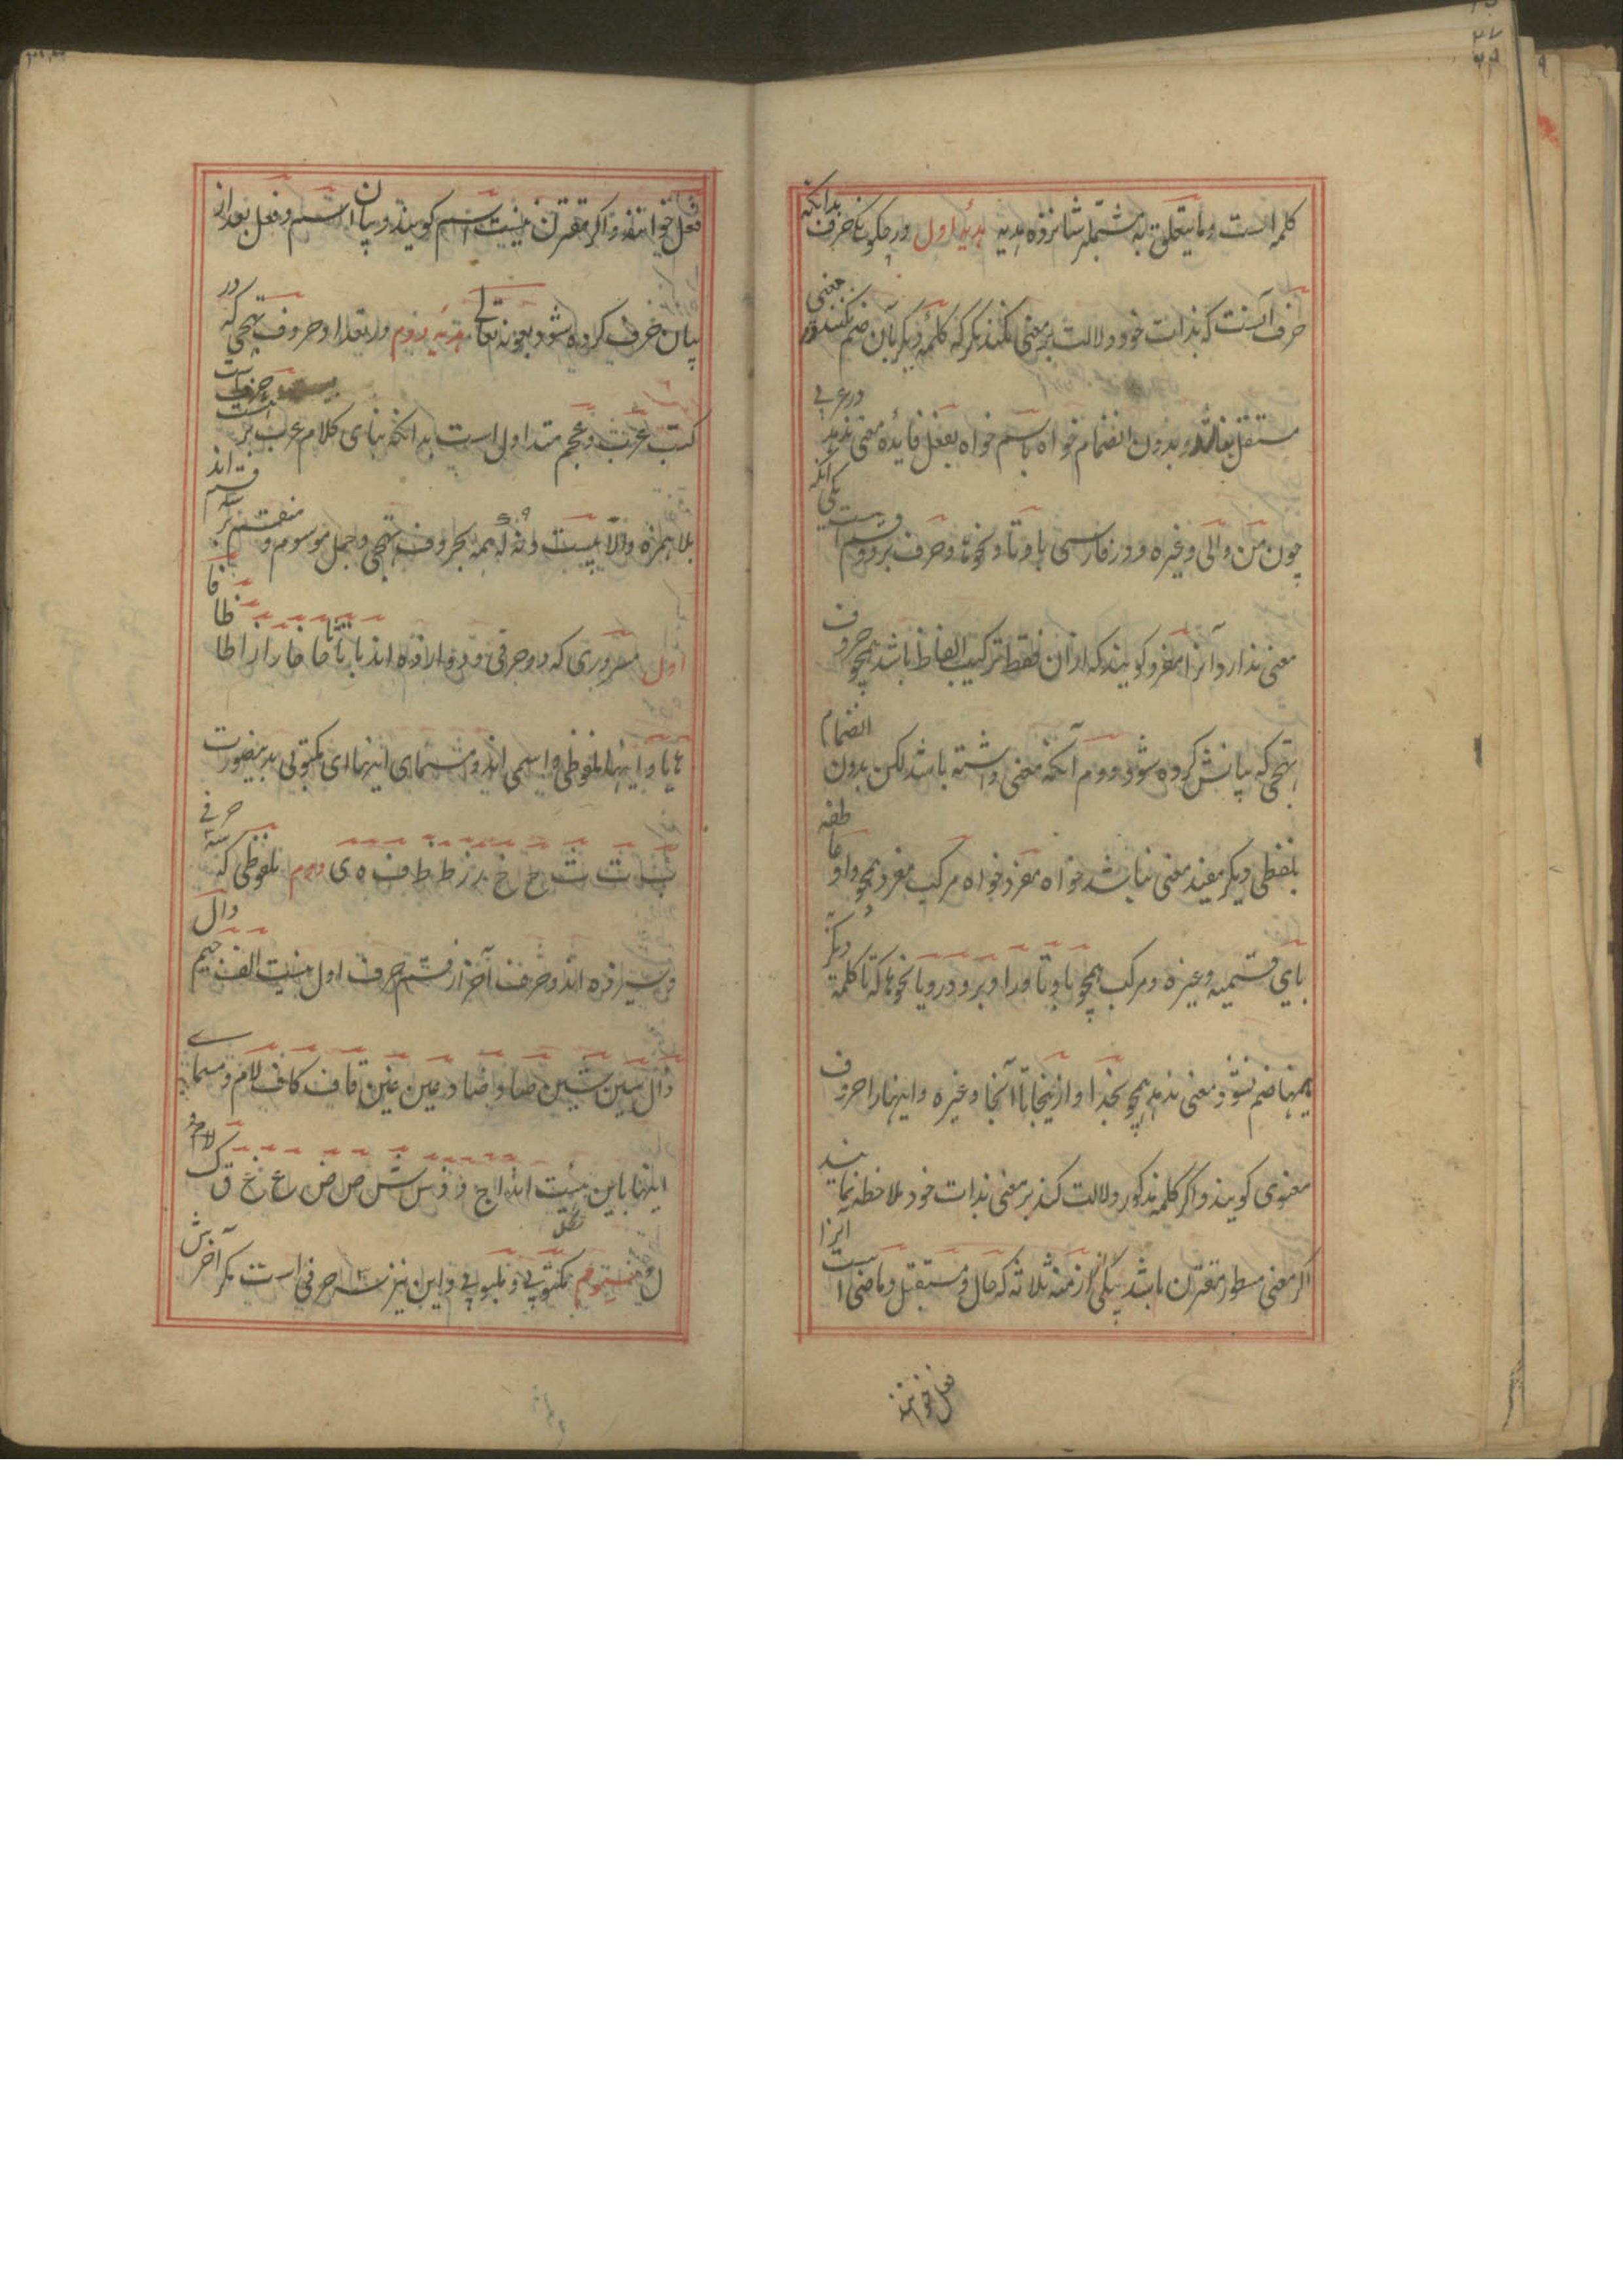 کلمه است و ما یتعلق به مشتمله شانزده هدیه هدیهٔ اول در چگونگی حرف بدانکه
حرف آنست که بذات خود دلالت بر معنی نکند مگر که کلمهٔ دیگر بآن ضم نکنند و در معنی
مستقل نباشد و بدون انضمام خواه باسم خواه بفعل فایده معنی ندهد در عربی
چون من و الی و غیره و در فارسی با و تا و نحوه و حرف بر دو قسم است یکی آنکه
معنی ندارد و آنرا مفرد گویند که ازان فقط ترکیب الفاظ باشد همچو حروف
تهجی که بیانش کرده شود دوم آنکه معنی داشته باشد لکن بدون انضمام
بلفظی دیگر مفید معنی نباشد خواه مفرد خواه مرکب مفرد همچو واو عاطفه
بای قسمیه و غیره و مرکب همچو با و تا و را و بر و در و یا نحوها که تا کلمهٔ دیگر
بهمینها ضم نشود معنی ندهد همچو بخدا و از ینجا تا آنجا و غیره و اینها را حروف
معنوی گویند و اگر کلمه مذکور دلالت کند بر معنی بذات خود ملاحظه نمایند
اگر معنی مسطور مقترن باشد بیکی ازمنه ثلاثه که حال و مستقبل و ماضی است آنرا
فعل خوانند
فعل خوانند و اگر مقترن نیست اسم گویند و بیان اسم و فعل بعد از
بیان حرف کرده شود بعونه تعالی هدیه دوم در تعداد حروف تهجی که در
کتب عرب و عجم متداول است بدانکه بنای کلام عرب بر بیست حرف است
بلا همزه و الا بیست و نه که همه بحروف تهجی و جمل موسوم و منقسم بر سه قسم اند
اول مسروری که دو حرفی و دوازده اند با تا ثا حا خا را زا طا ظا فا
ها یا و اینها ملفوظی و اسمی اند و مسمای اینها ای مکتوبی بدینصورت
ب ت ث ح خ ر ز ط ظ ف ه ی دوم ملفوظی که سه حرفی
و سیزده اند و حرف آخر از قسم حرف اول نیست الف جیم دال
ذال سین شین صاد ضاد عین غین قاف کاف لام و مسمای
اینها باین هیئت اند ا ج د ذ س ش ص ض ع غ ق ک
ل قسم سوم مکتوبی و ملبوبی و این نیز سه حرفی است مگر آخرش